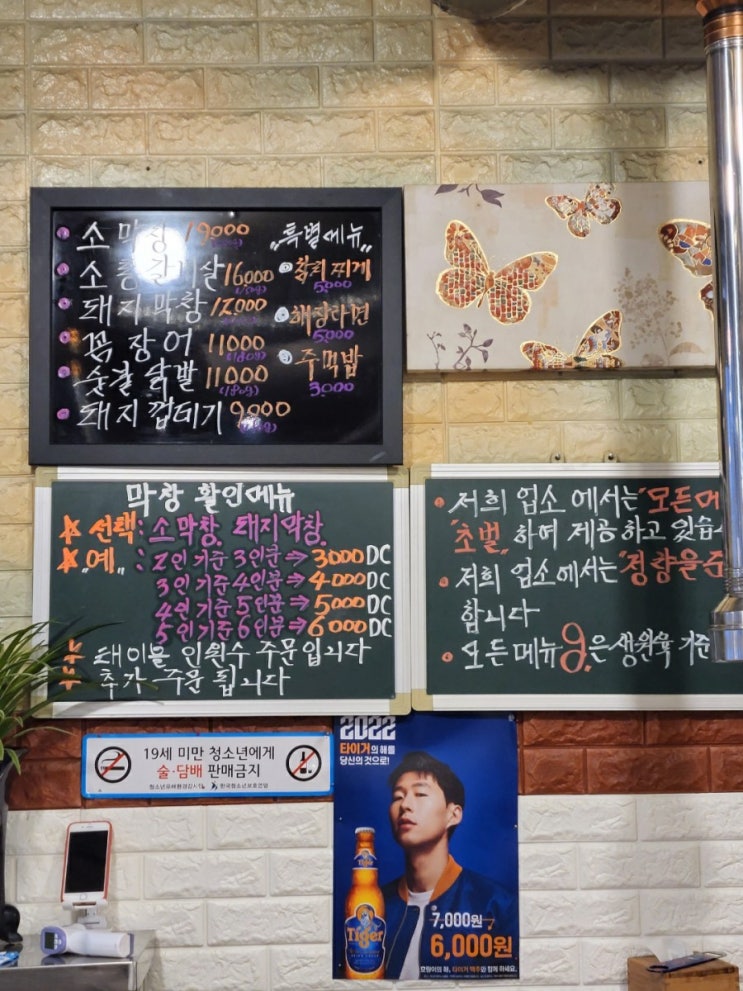 소 막창 19000
소통갈비살 16000
돼지막창 12000
꼼장어 11000
(180g)
숯갈닭발 11000
(180g)
돼지껍데기 9000
„특별메뉴„
① 참치찌게
5,000
② 해장라면
5,000
③ 주먹밥
3,000
막창 할인메뉴
☆ 선택: 소막창, 돼지막창
☆ „예„ : 2인 기준 3인분 ⇒ 3000 DC
3인 기준 4인분 ⇒ 4000 DC
4인 기준 5인분 ⇒ 5000 DC
5인 기준 6인분 ⇒ 6000 DC
태이블 인원수 주문입니다
추가 주문 됩니다
• 저희 업소에서는 "모든메
"초벌„ 하여 제공하고 있습
• 저희 업소에서는 "정량을 준
합니다
• 모든메뉴 g.은 생원육 기준
19세 미만 청소년에게
술·담배 판매금지
한국청소년보호연맹
2022
타이거의 해를
당신의 것으로!
Tiger
7,000원
6,000원
호랑이의 해, 타이거 맥주와 함께 하세요.